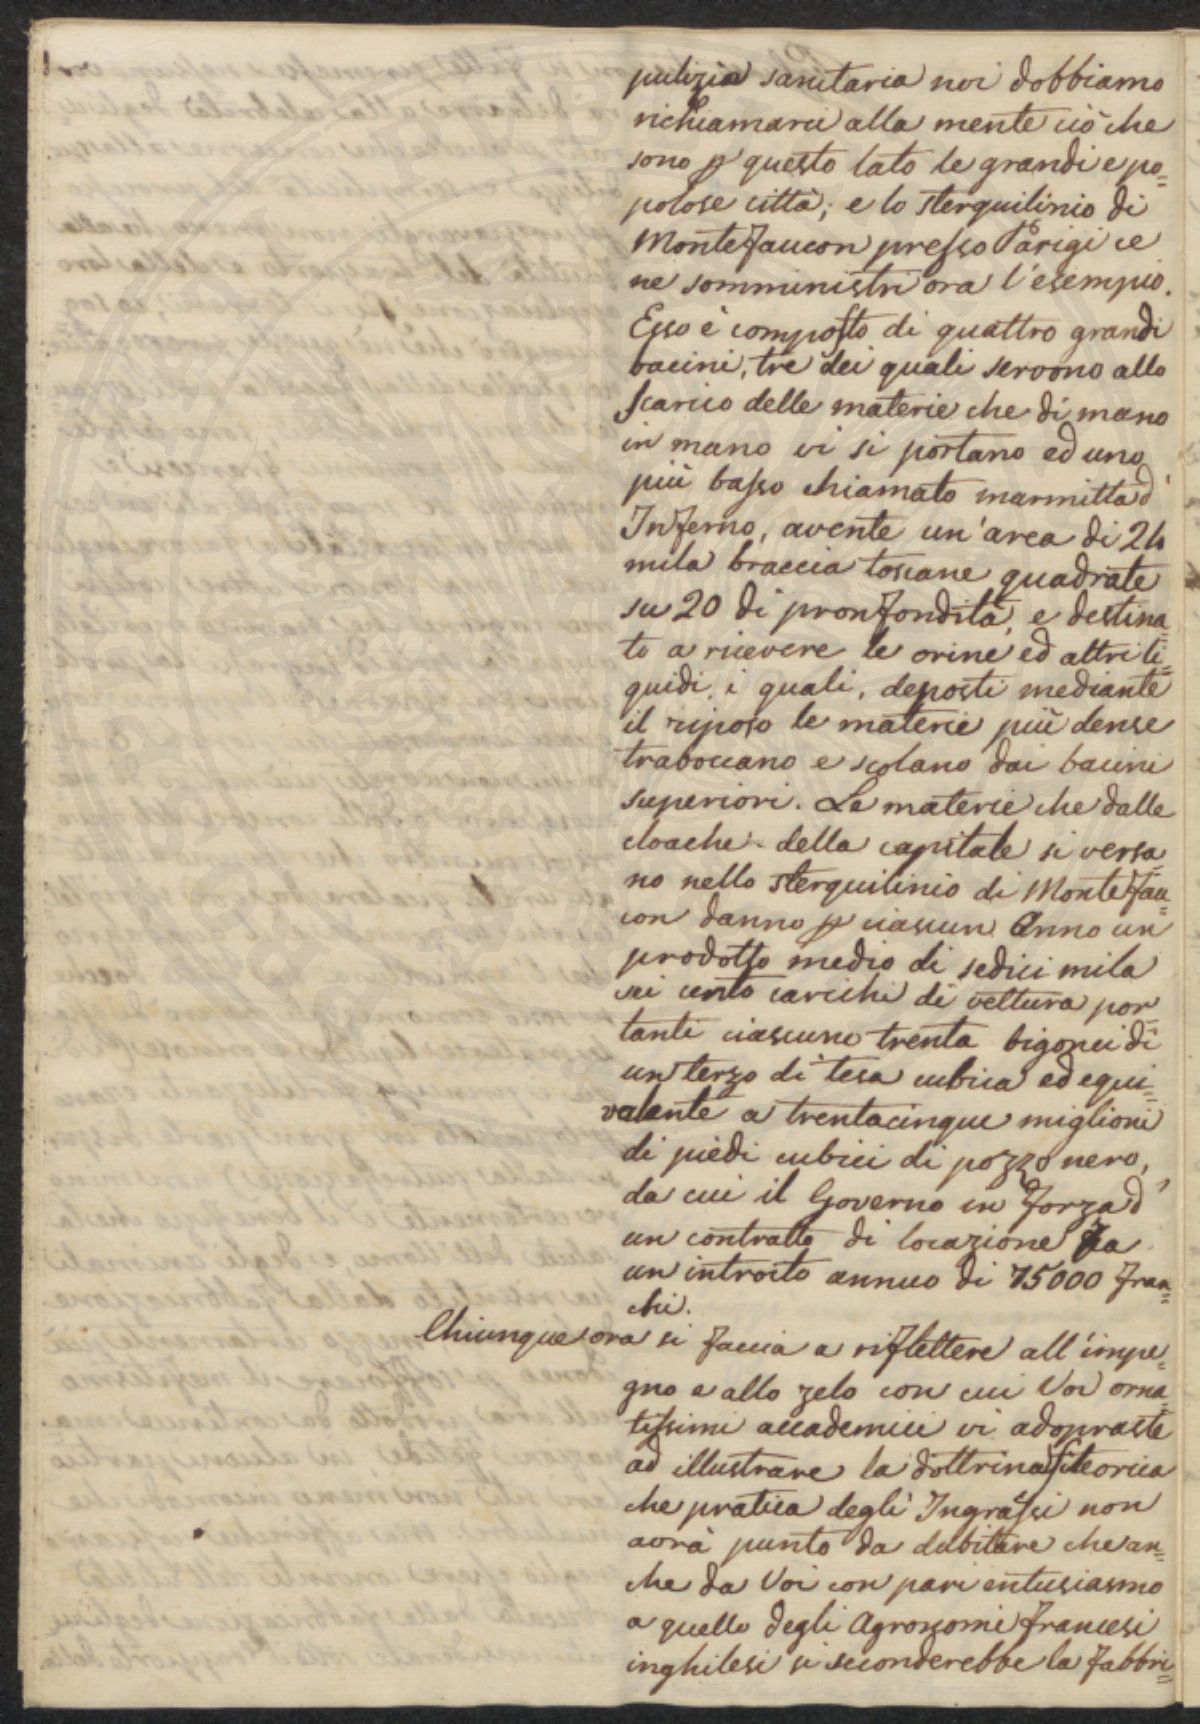 pulizia sanitaria noi dobbiamo
richiamarci alla mente ciò che
sono p questo lato le grandi e po=
polose città; e lo sterquilinio di
Montefaucon presso Parigi ce
ne somministri ora l'esempio.
Esso è composto di quattro grandi
bacini, tre dei quali servono allo
scarico delle materie che di mano
in mano vi si portano ed uno
più basso chiamato marmitta d'
Inferno, avente un'area di 24
mila braccia toscane quadrate
su 20 di pronfondità, e destina=
to a ricevere le orine ed altri li=
quidi, i quali, deposti mediante
il riposo le materie più dense
traboccano e scolano dai bacini
superiori. Le materie che dalle
cloache della capitale si versa=
no nello sterquilinio di Montefau=
con danno p ciascun Anno un
prodotto medio di sedici mila
sei cento carichi di vettura por=
tanti ciascuno trenta bigonci di
un terzo di tesa cubica ed equi=
valente a trentacinque miglioni
di piedi cubici di pozzo nero,
da cui il Governo in forza d'
un contratto di locazione fa
un introito annuo di 75000 fran=
chi.
Chiunque ora si faccia a riflettere all'impe=
gno e allo zelo con cui Voi orna=
tissimi accademici vi adopraste
ad illustrare la dottrina sì teorica
che pratica degli Ingrassi non
avrà punto da dubitare che an=
che da Voi con pari entusiasmo
a quello degli Agronomi francesi
inghilesi si seconderebbe la fabbri=